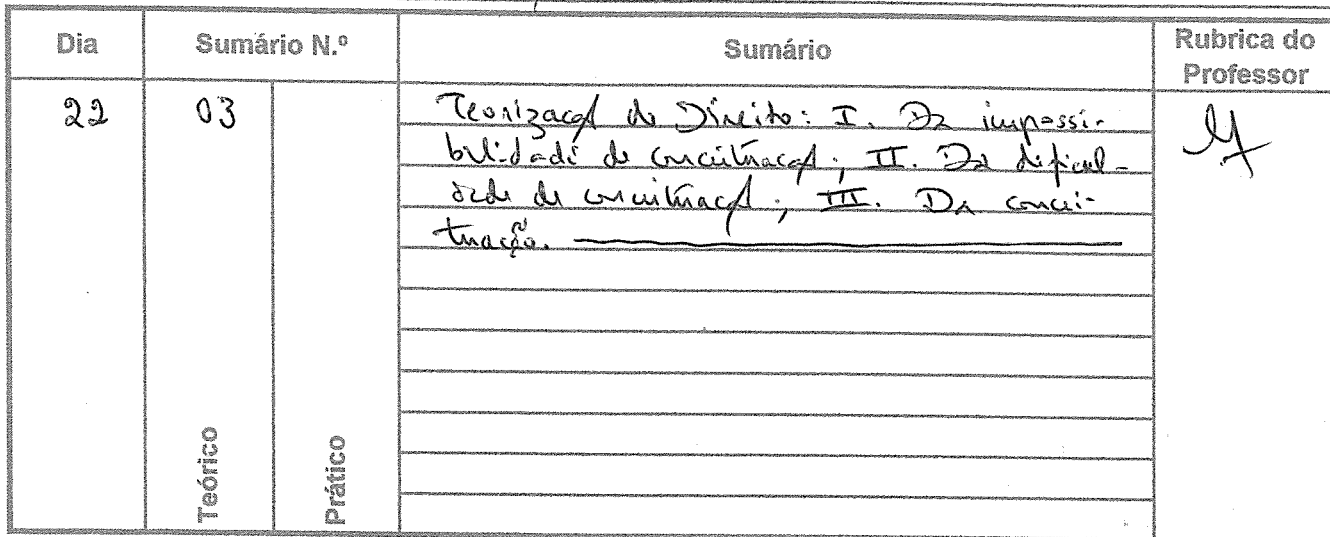 Dia Sumário N.º Sumário Rubrica do Professor
22 03 Teorização do Direito: I. Da impossi-
bilidade de conceituação; II. Da dificul-
dade de conceituação; III. Da concei-
tuação.
Teórico
Prático